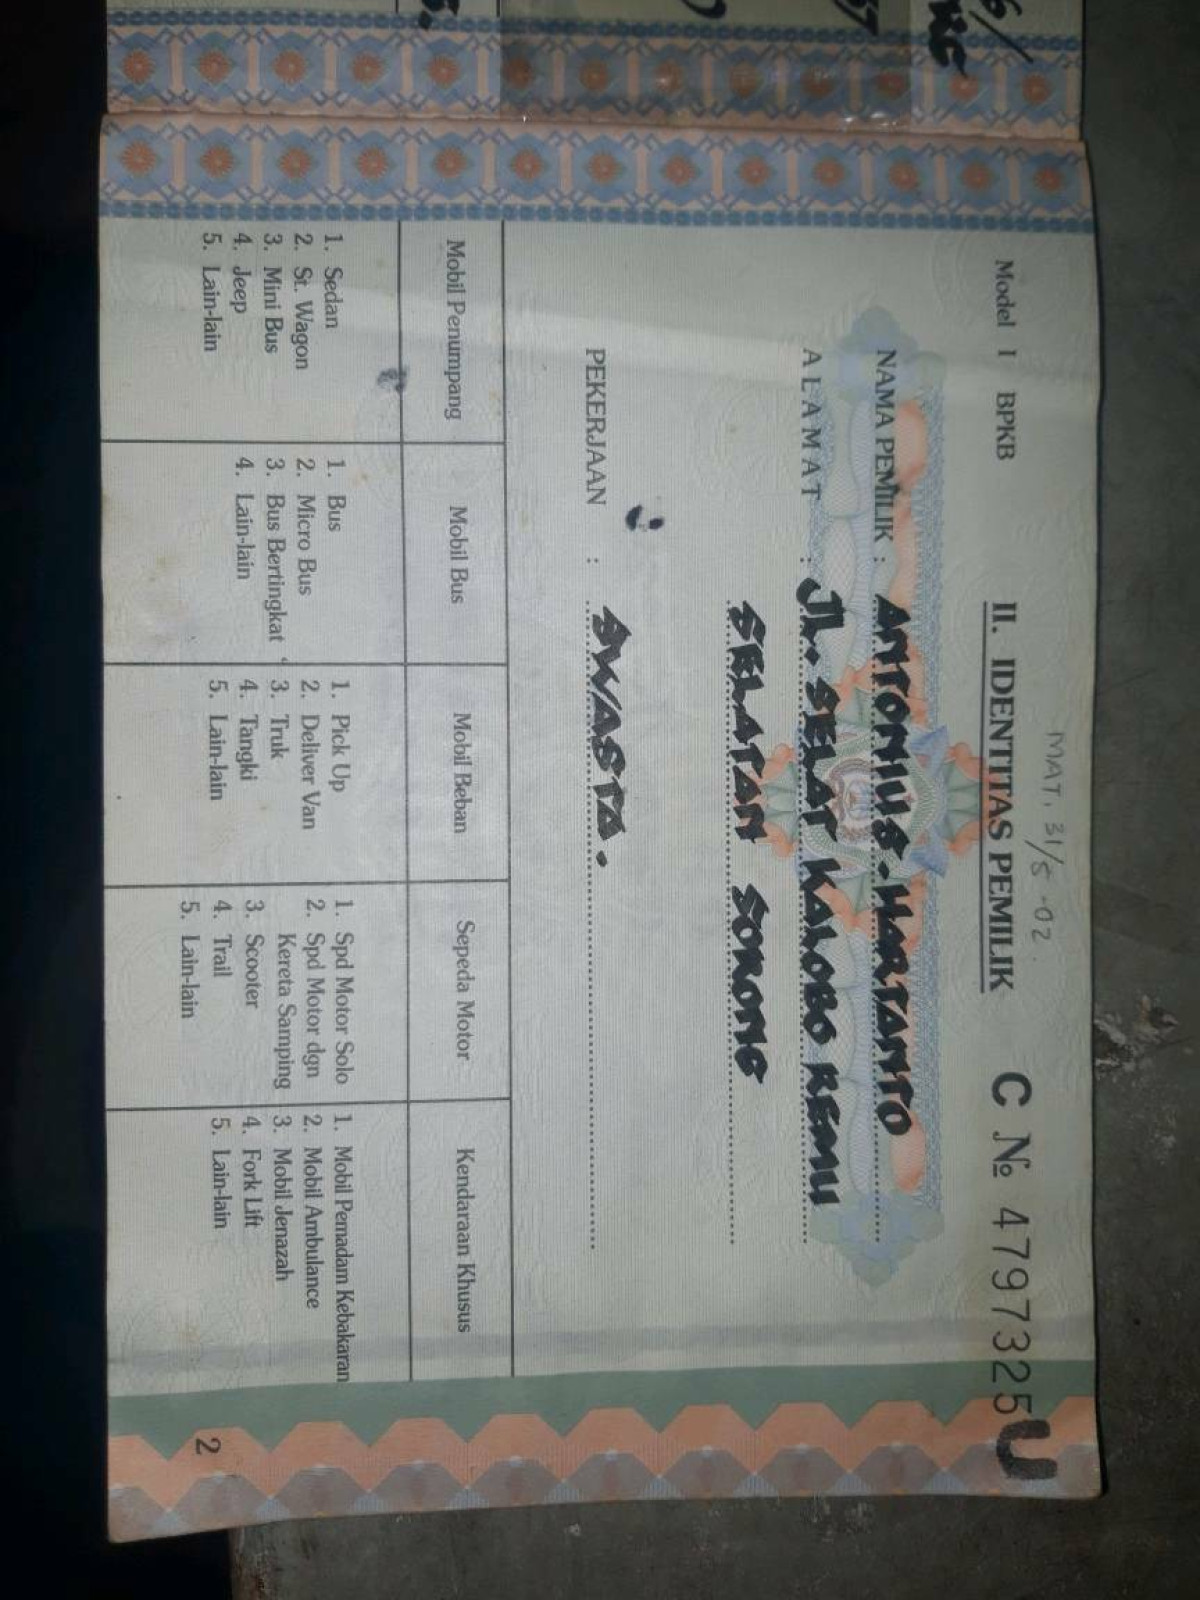 MAT. 31/8 -02.
Model I BPKB
II. IDENTITAS PEMILIK
C № 4797325 U
NAMA PEMILIK : ANTONIUS. HARTANTO
ALAMAT : JL. SELAT KALOBO REMU
SELATAN SORONG
PEKERJAAN : SWASTA.
Mobil Penumpang
1. Sedan
2. St. Wagon
3. Mini Bus
4. Jeep
5. Lain-lain
Mobil Bus
1. Bus
2. Micro Bus
3. Bus Bertingkat
4. Lain-lain
Mobil Beban
1. Pick Up
2. Deliver Van
3. Truk
4. Tangki
5. Lain-lain
Sepeda Motor
1. Spd Motor Solo
2. Spd Motor dgn
Kereta Samping
3. Scooter
4. Trail
5. Lain-lain
Kendaraan Khusus
1. Mobil Pemadam Kebakaran
2. Mobil Ambulance
3. Mobil Jenazah
4. Fork Lift
5. Lain-lain
2